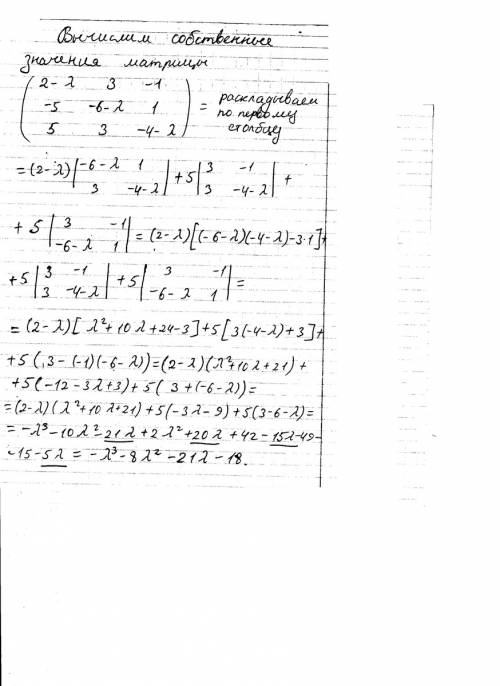 Вычислим собственные
значения матрицы
(2-λ 3 -1
-5 -6-λ 1
5 3 -4-λ) = раскладываем
по первому
столбцу
=(2-λ)|-6-λ 1
3 -4-λ|+5|3 -1
3 -4-λ|+
+5|3 -1
-6-λ 1|=(2-λ)[(-6-λ)(-4-λ)-3·1]+
+5|3 -1
3 -4-λ|+5|3 -1
-6-λ 1|=
=(2-λ)[λ²+10λ+24-3]+5[3(-4-λ)+3]+
+5(3-(-1)(-6-λ))=(2-λ)(λ²+10λ+21)+
+5(-12-3λ+3)+5(3+(-6-λ))=
=(2-λ)(λ²+10λ+21)+5(-3λ-9)+5(3-6-λ)=
=-λ³-10λ²-21λ+2λ²+20λ+42-15λ-49-
-15-5λ=-λ³-8λ²-21λ-18.